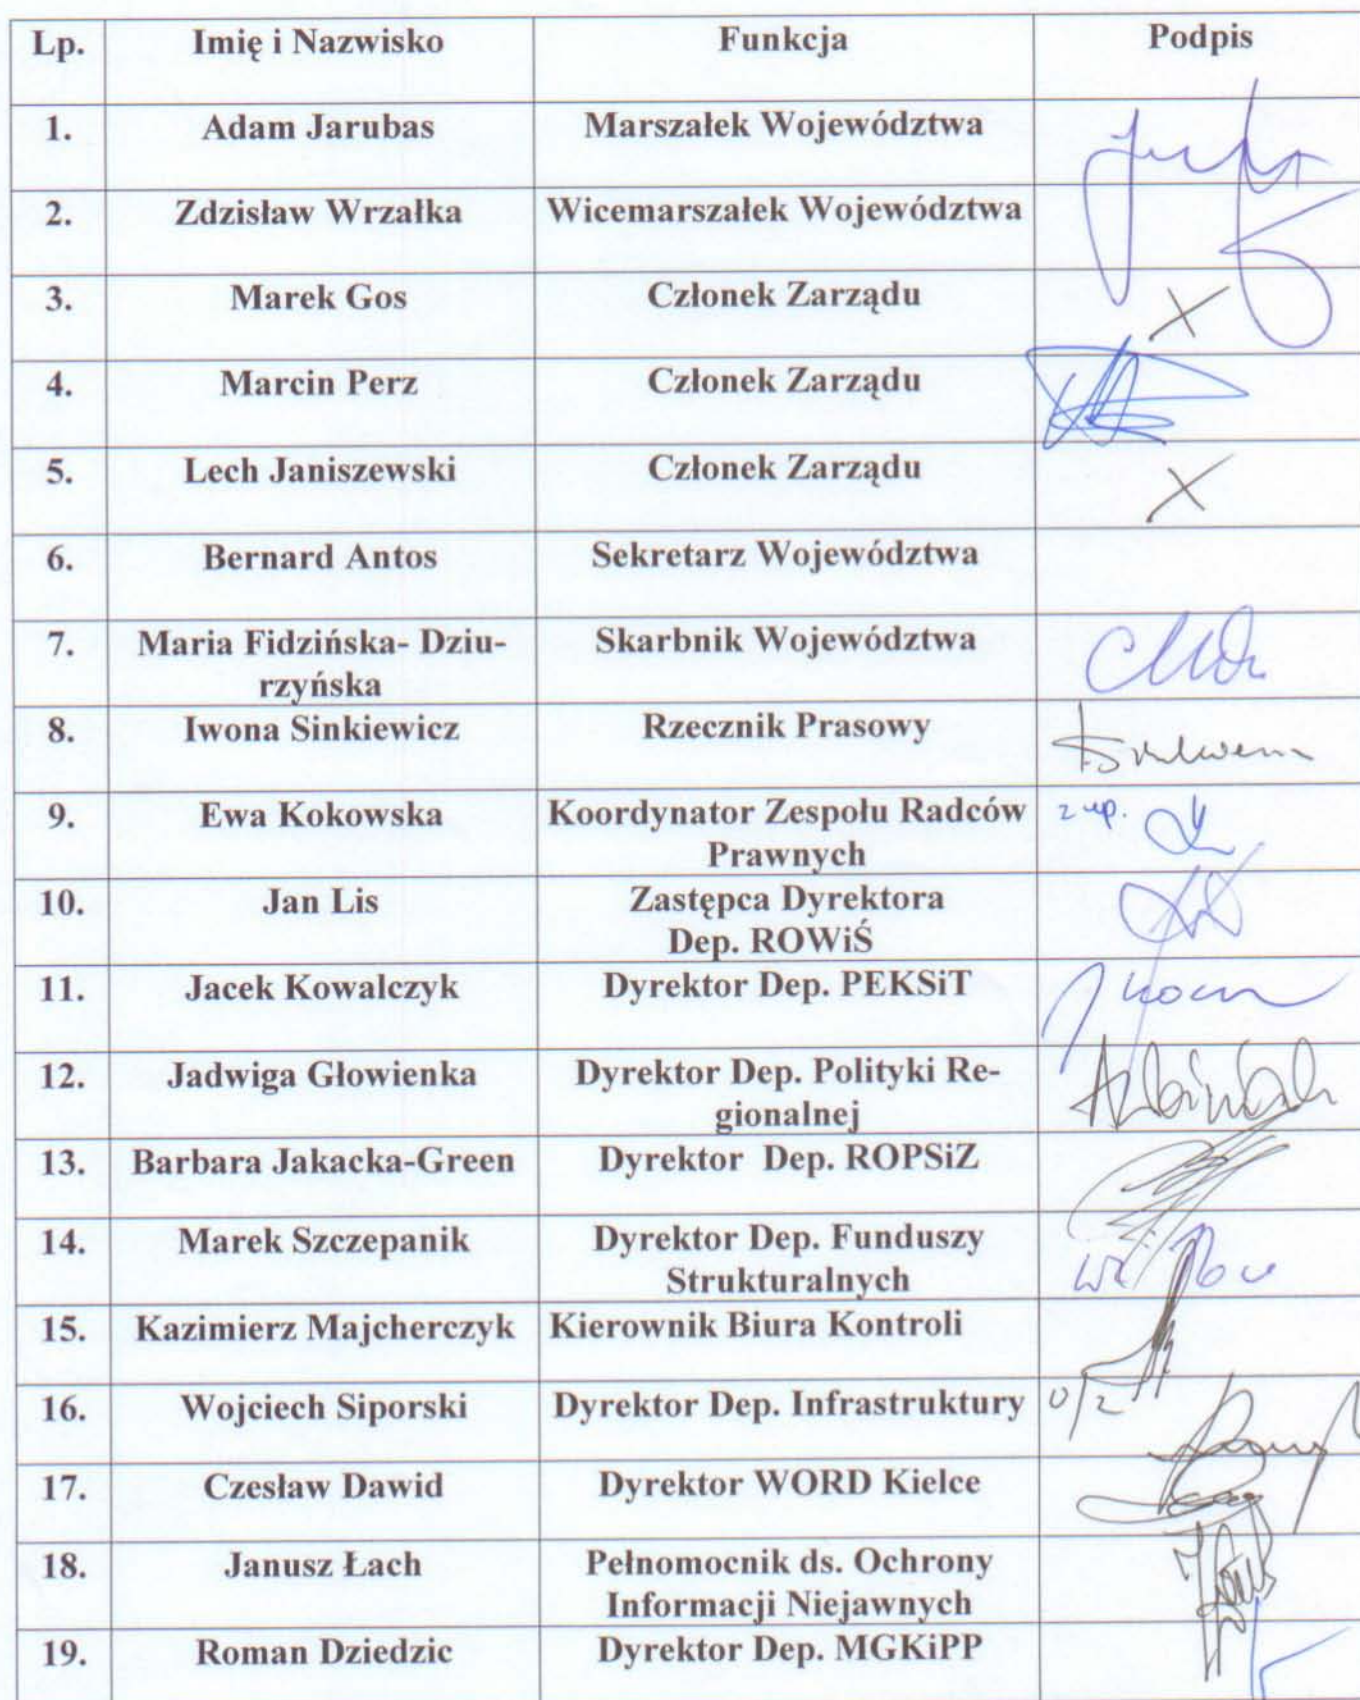 Lp. Imię i Nazwisko Funkcja Podpis
1. Adam Jarubas Marszałek Województwa
2. Zdzisław Wrzałka Wicemarszałek Województwa
3. Marek Gos Członek Zarządu X
4. Marcin Perz Członek Zarządu
5. Lech Janiszewski Członek Zarządu X
6. Bernard Antos Sekretarz Województwa
7. Maria Fidzińska- Dziu- Skarbnik Województwa
rzyńska
8. Iwona Sinkiewicz Rzecznik Prasowy
9. Ewa Kokowska Koordynator Zespołu Radców z up.
Prawnych
10. Jan Lis Zastępca Dyrektora
Dep. ROWiŚ
11. Jacek Kowalczyk Dyrektor Dep. PEKSiT
12. Jadwiga Głowienka Dyrektor Dep. Polityki Re-
gionalnej
13. Barbara Jakacka-Green Dyrektor Dep. ROPSiZ
14. Marek Szczepanik Dyrektor Dep. Funduszy
Strukturalnych
15. Kazimierz Majcherczyk Kierownik Biura Kontroli
16. Wojciech Siporski Dyrektor Dep. Infrastruktury
17. Czesław Dawid Dyrektor WORD Kielce
18. Janusz Łach Pełnomocnik ds. Ochrony
Informacji Niejawnych
19. Roman Dziedzic Dyrektor Dep. MGKiPP